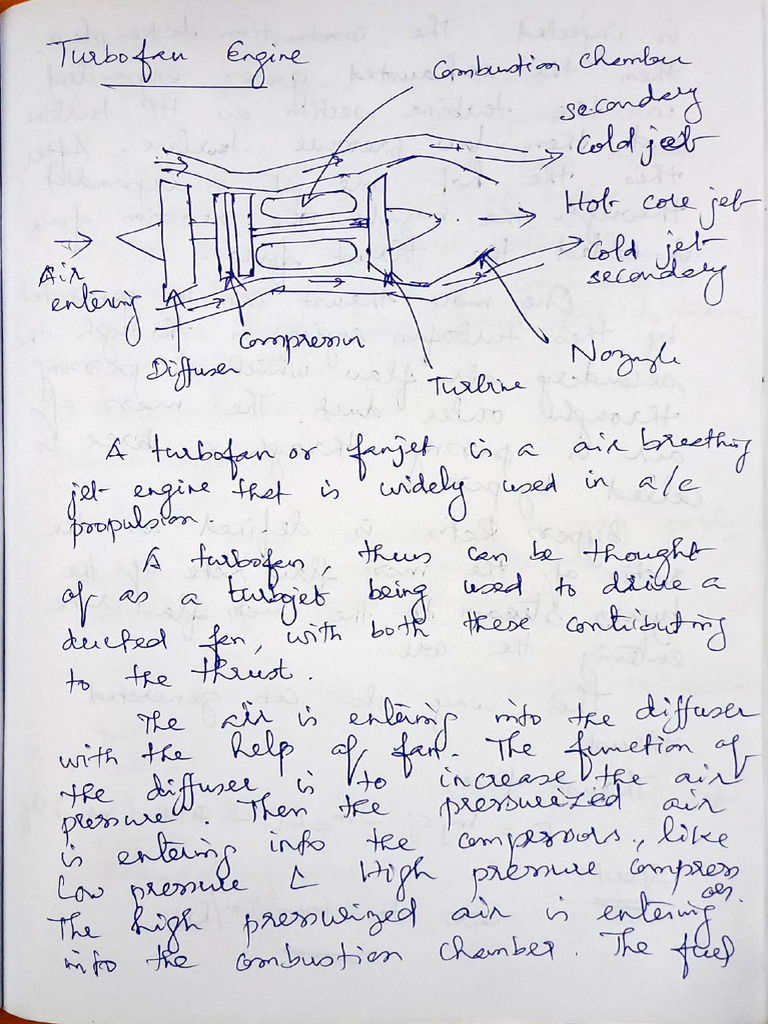 Turbofan Engine
Combustion chamber
secondary
Cold jet
Hot core jet
Cold jet
secondary
Air
entering
Compressor
Diffuser
Nozzle
Turbine
A turbofan or fanjet is a air breathing
jet engine that is widely used in a/c
propulsion.
A turbofan, thus can be thought
of as a turbojet being used to drive a
ducted fan, with both these contributing
to the thrust.
The air is entering into the diffuser
with the help of fan. The function of
the diffuser is to increase the air
pressure. Then the pressurized air
is entering into the compressors, like
Low pressure & High pressure compress
or.
The high pressurized air is entering
into the combustion chamber. The fuel